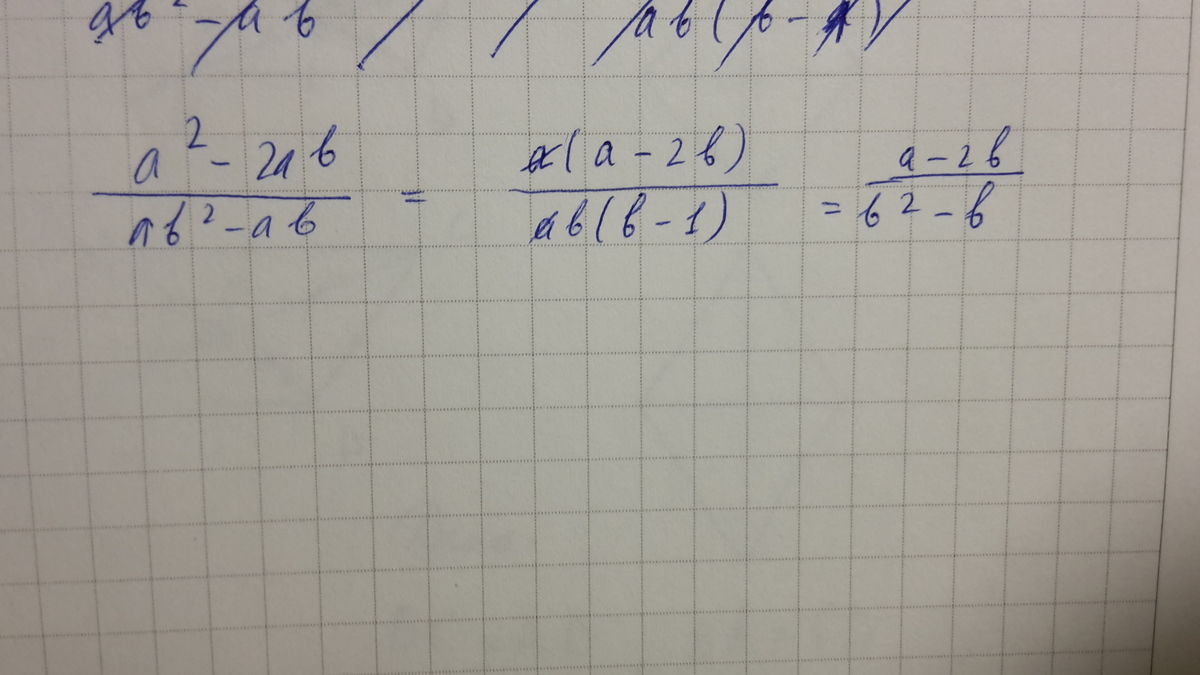 ab² - ab ab(b-1)
a² - 2ab / ab² - ab = a(a - 2b) / ab(b - 1) = a - 2b / b² - b